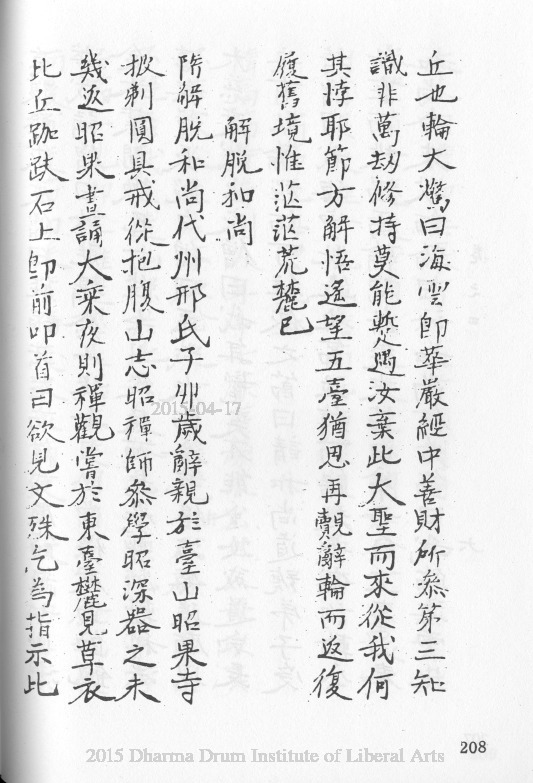 丘也輪大驚曰海雲即華嚴經中善財所叅第三知
識非萬劫修持莫能㸃遇汝棄此大聖而來從我何
其悖耶節方解悟遙望五臺猶思再覩辭輪而返復
復舊境惟茫茫荒麓已
解脫和尚
隋解脫和尚代州邢氏子丱歲辭親於臺山昭果寺
披剃圓具戒從抱腹山志昭禪師叅學昭深器之未
幾返昭果晝誦大乘夜則禪觀嘗於東臺麓見草衣
比丘跏趺石上即前叩首曰欲見文殊乞為指示比
2015-04-17
208
2015 Dharma Drum Institute of Liberal Arts